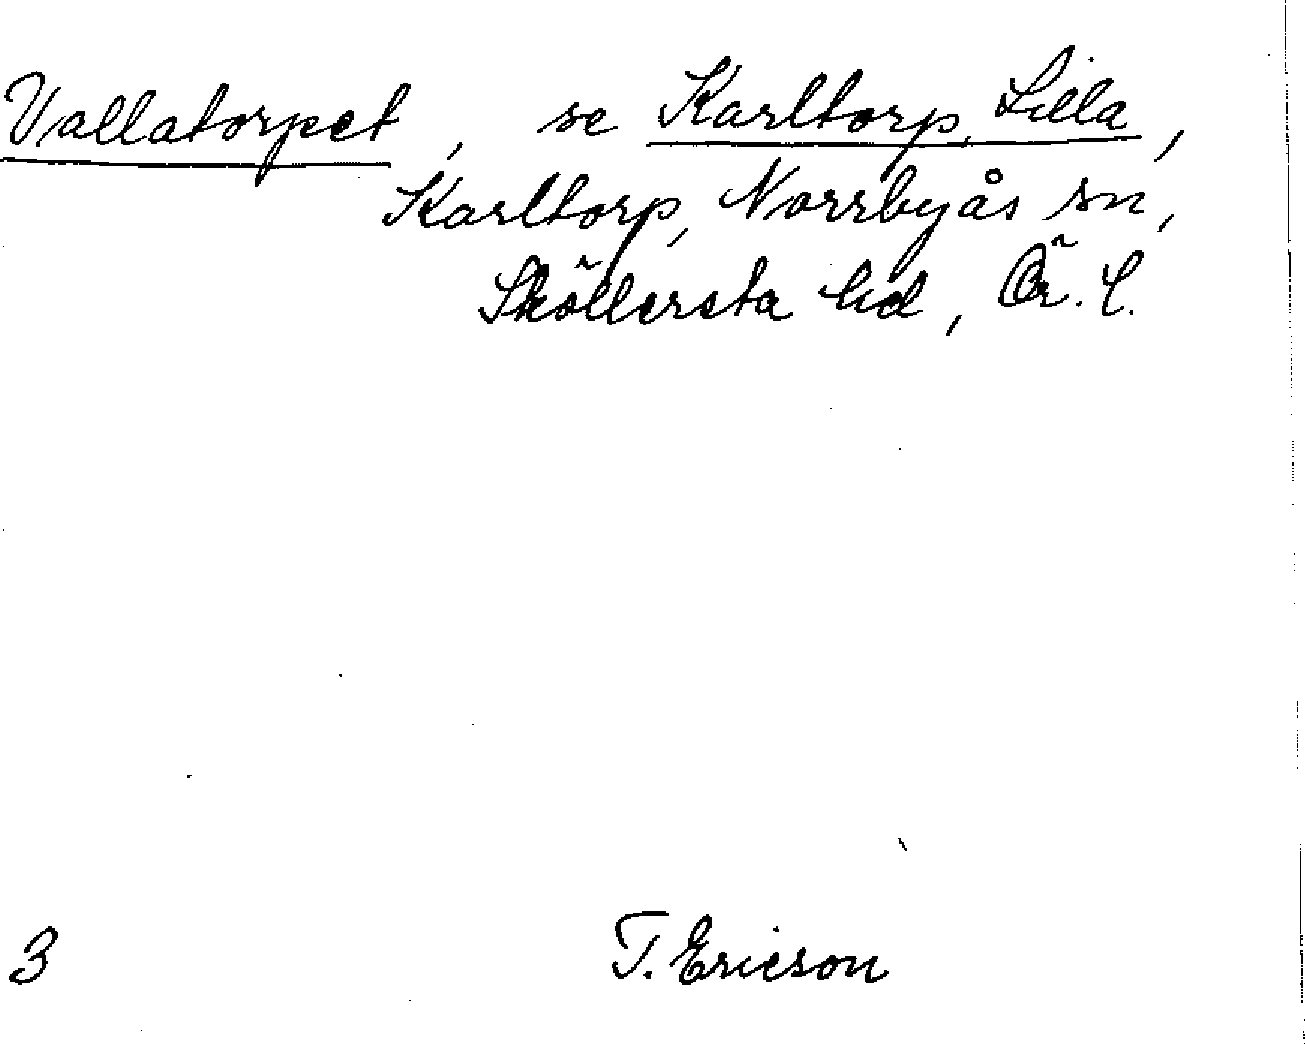 Vallatorpet, se Karltorp, Lilla,
Karltorp, Norrbyås sn,
Sköllersta hd, Ör. l.
3 T. Ericson